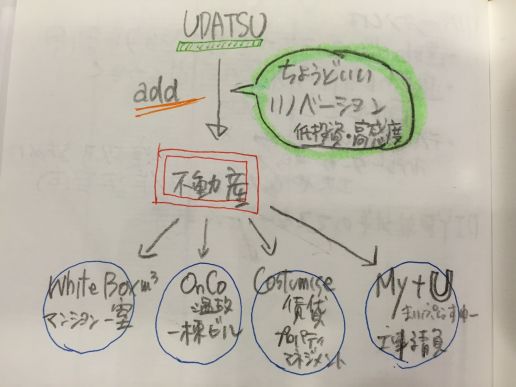 UDATSU
add
ちょうどいい
リノベーション
低投資・高感度
不動産
White Box m³
マンション一室
OnCo
温故
一棟ビル
Costumise
賃貸
プロパティ
マネジメント
My+U
まいぷらすゆー
工事請負